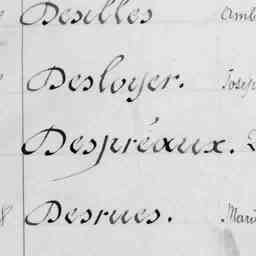 Desilles Amb
Desloyer. Josep
Despréaux.
Desrues. Mari